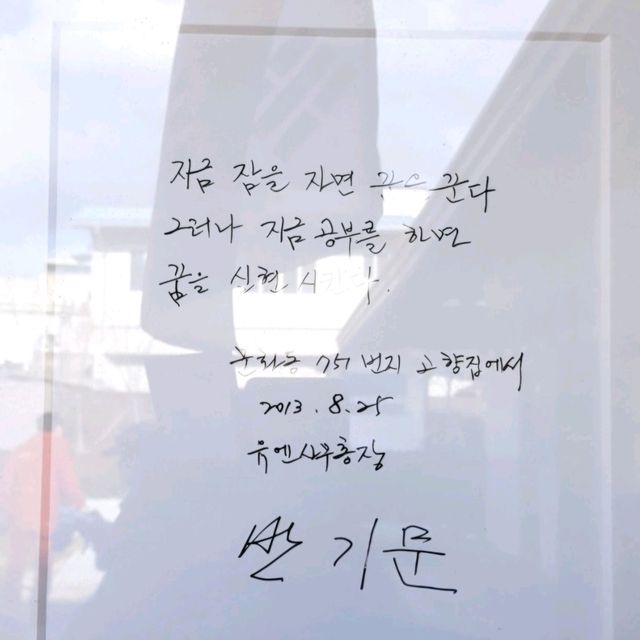 지금 잠을 자면 꿈을 꾼다
그러나 지금 공부를 하면
꿈을 실현 시킨다.
문화동 757 번지 고향집에서
2013.8.25
유엔사무총장
반기문